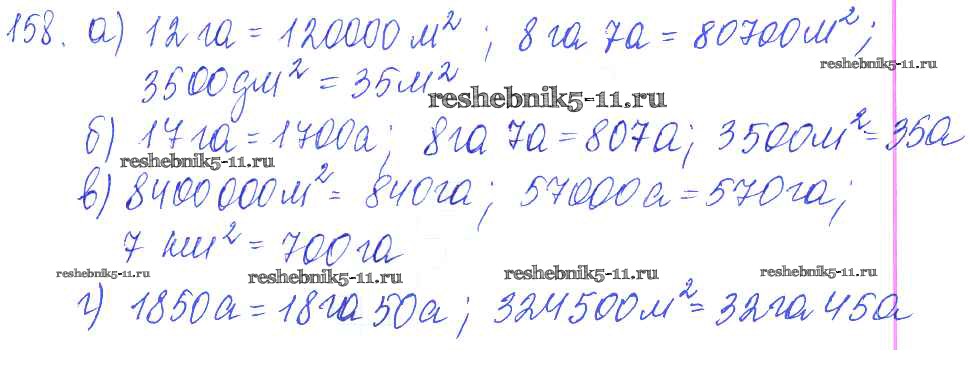 158. а) 12 га = 120000 м²; 8 га 7а = 80700м²;
reshebnik5-11.ru
3500дм² = 35м²
reshebnik5-11.ru
б) 17 га = 1700а; 8га 7а = 807а; 3500м² = 35а
reshebnik5-11.ru
в) 8400000м² = 840га; 57000а = 570га;
7 км² = 700га
reshebnik5-11.ru reshebnik5-11.ru reshebnik5-11.ru reshebnik5-11.ru
г) 1850а = 18га 50а; 324500м² = 32га 45а